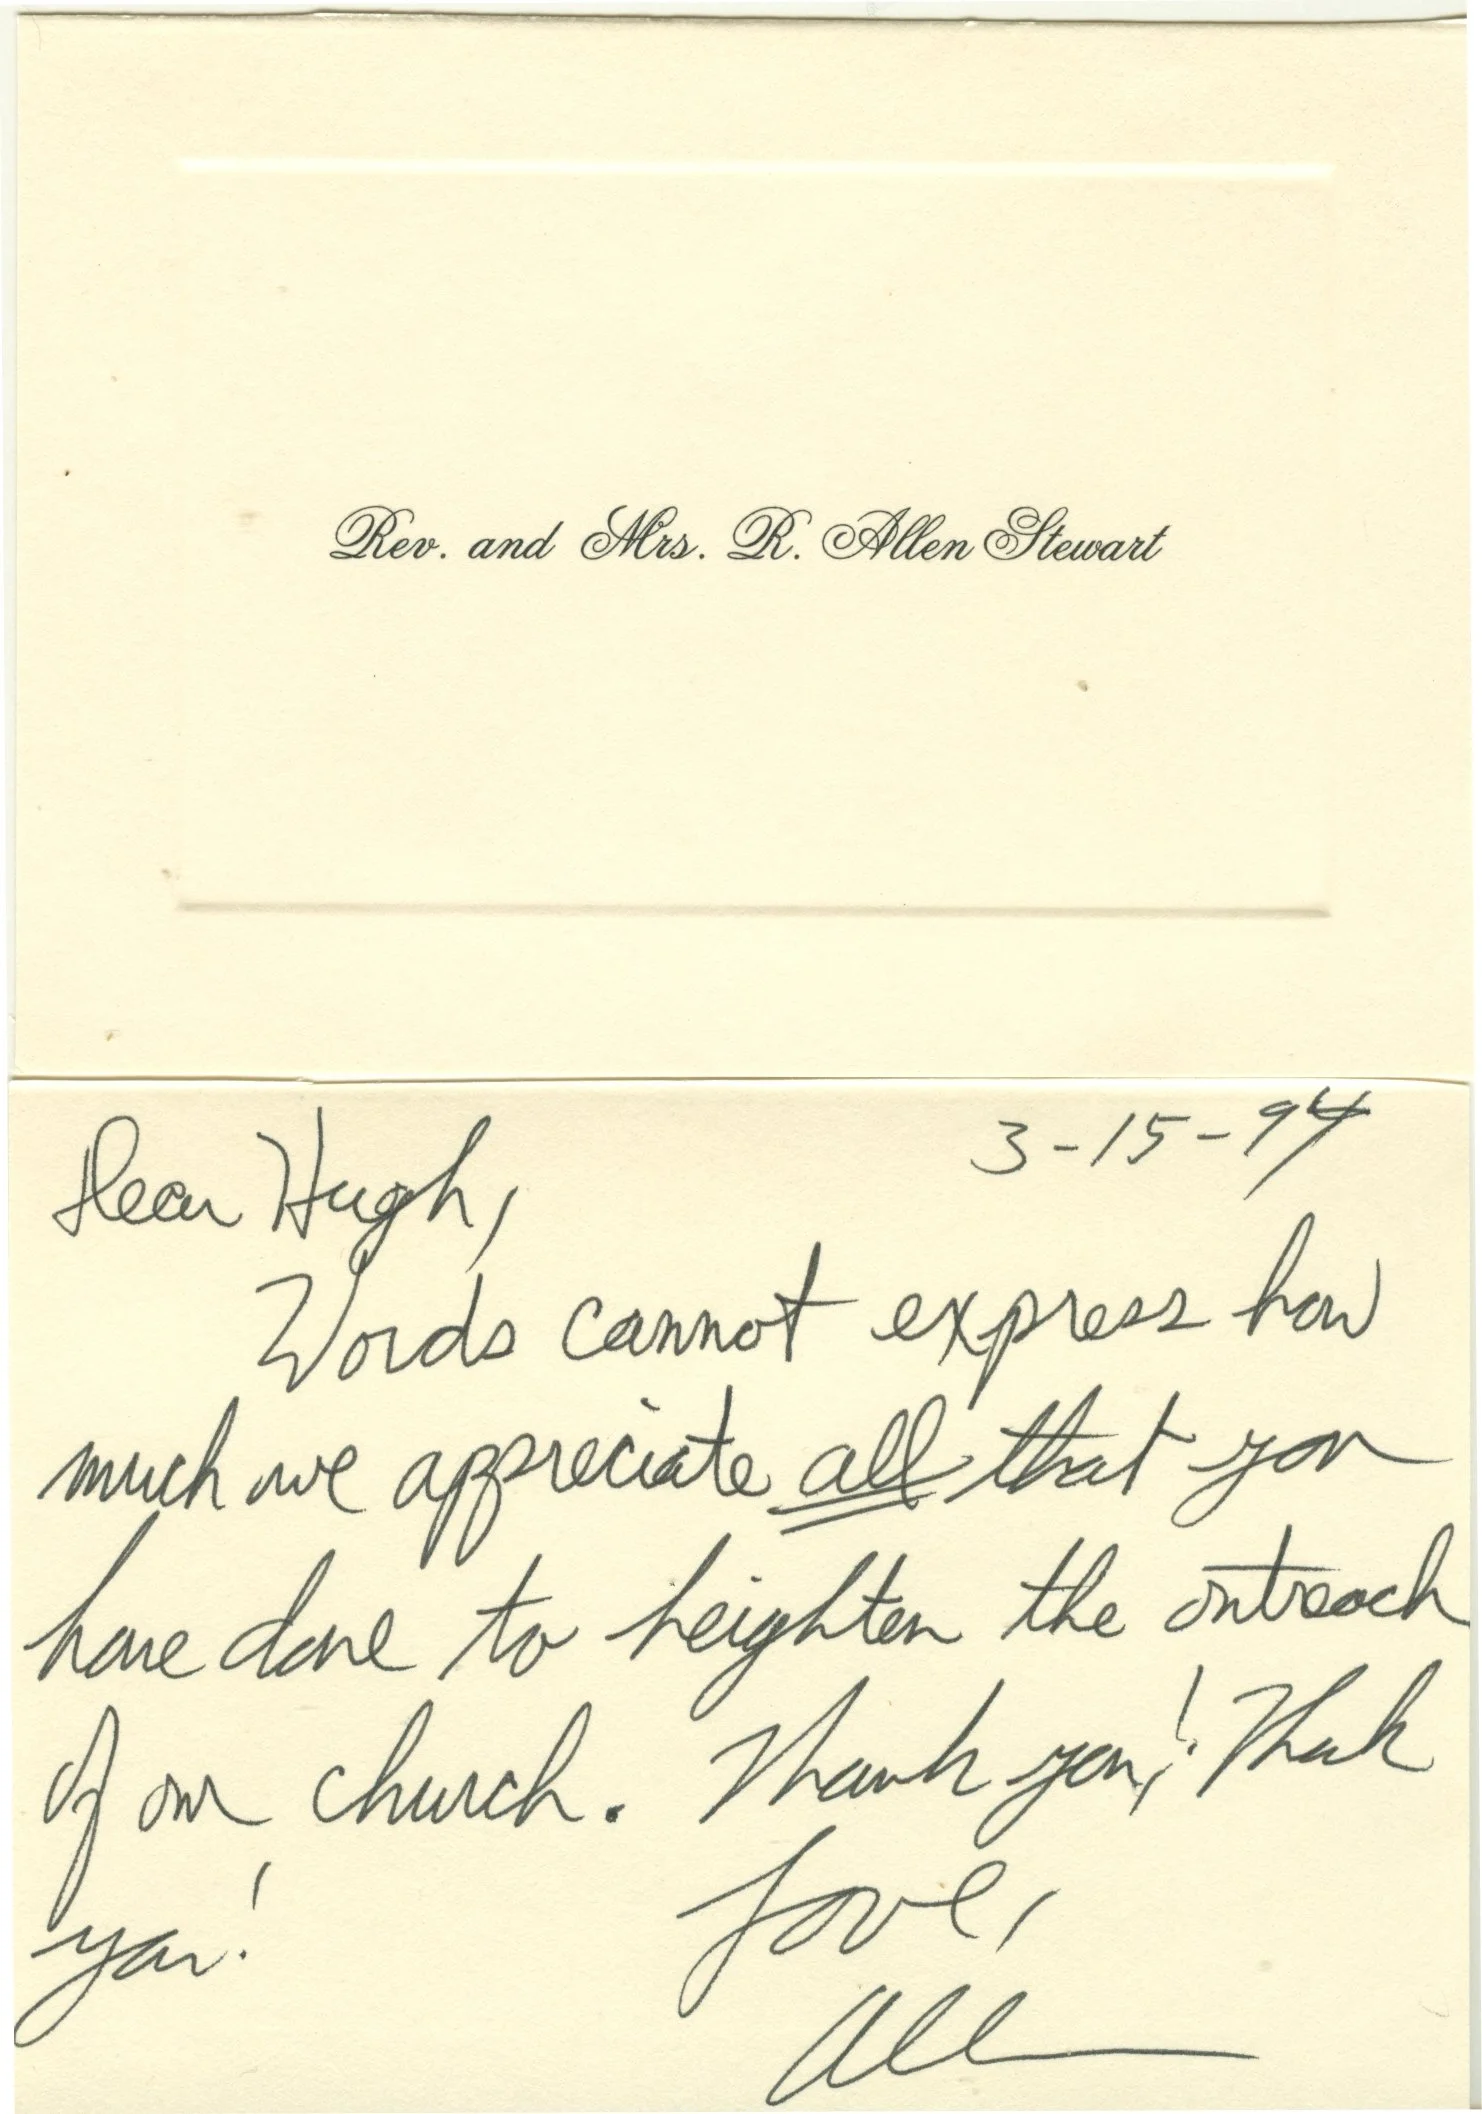 Rev. and Mrs. R. Allen Stewart
3-15-94
Dear Hugh,
Words cannot express how
much we appreciate all that you
have done to heighten the outreach
of our church. Thank you! Thank
you!
Love,
Allen